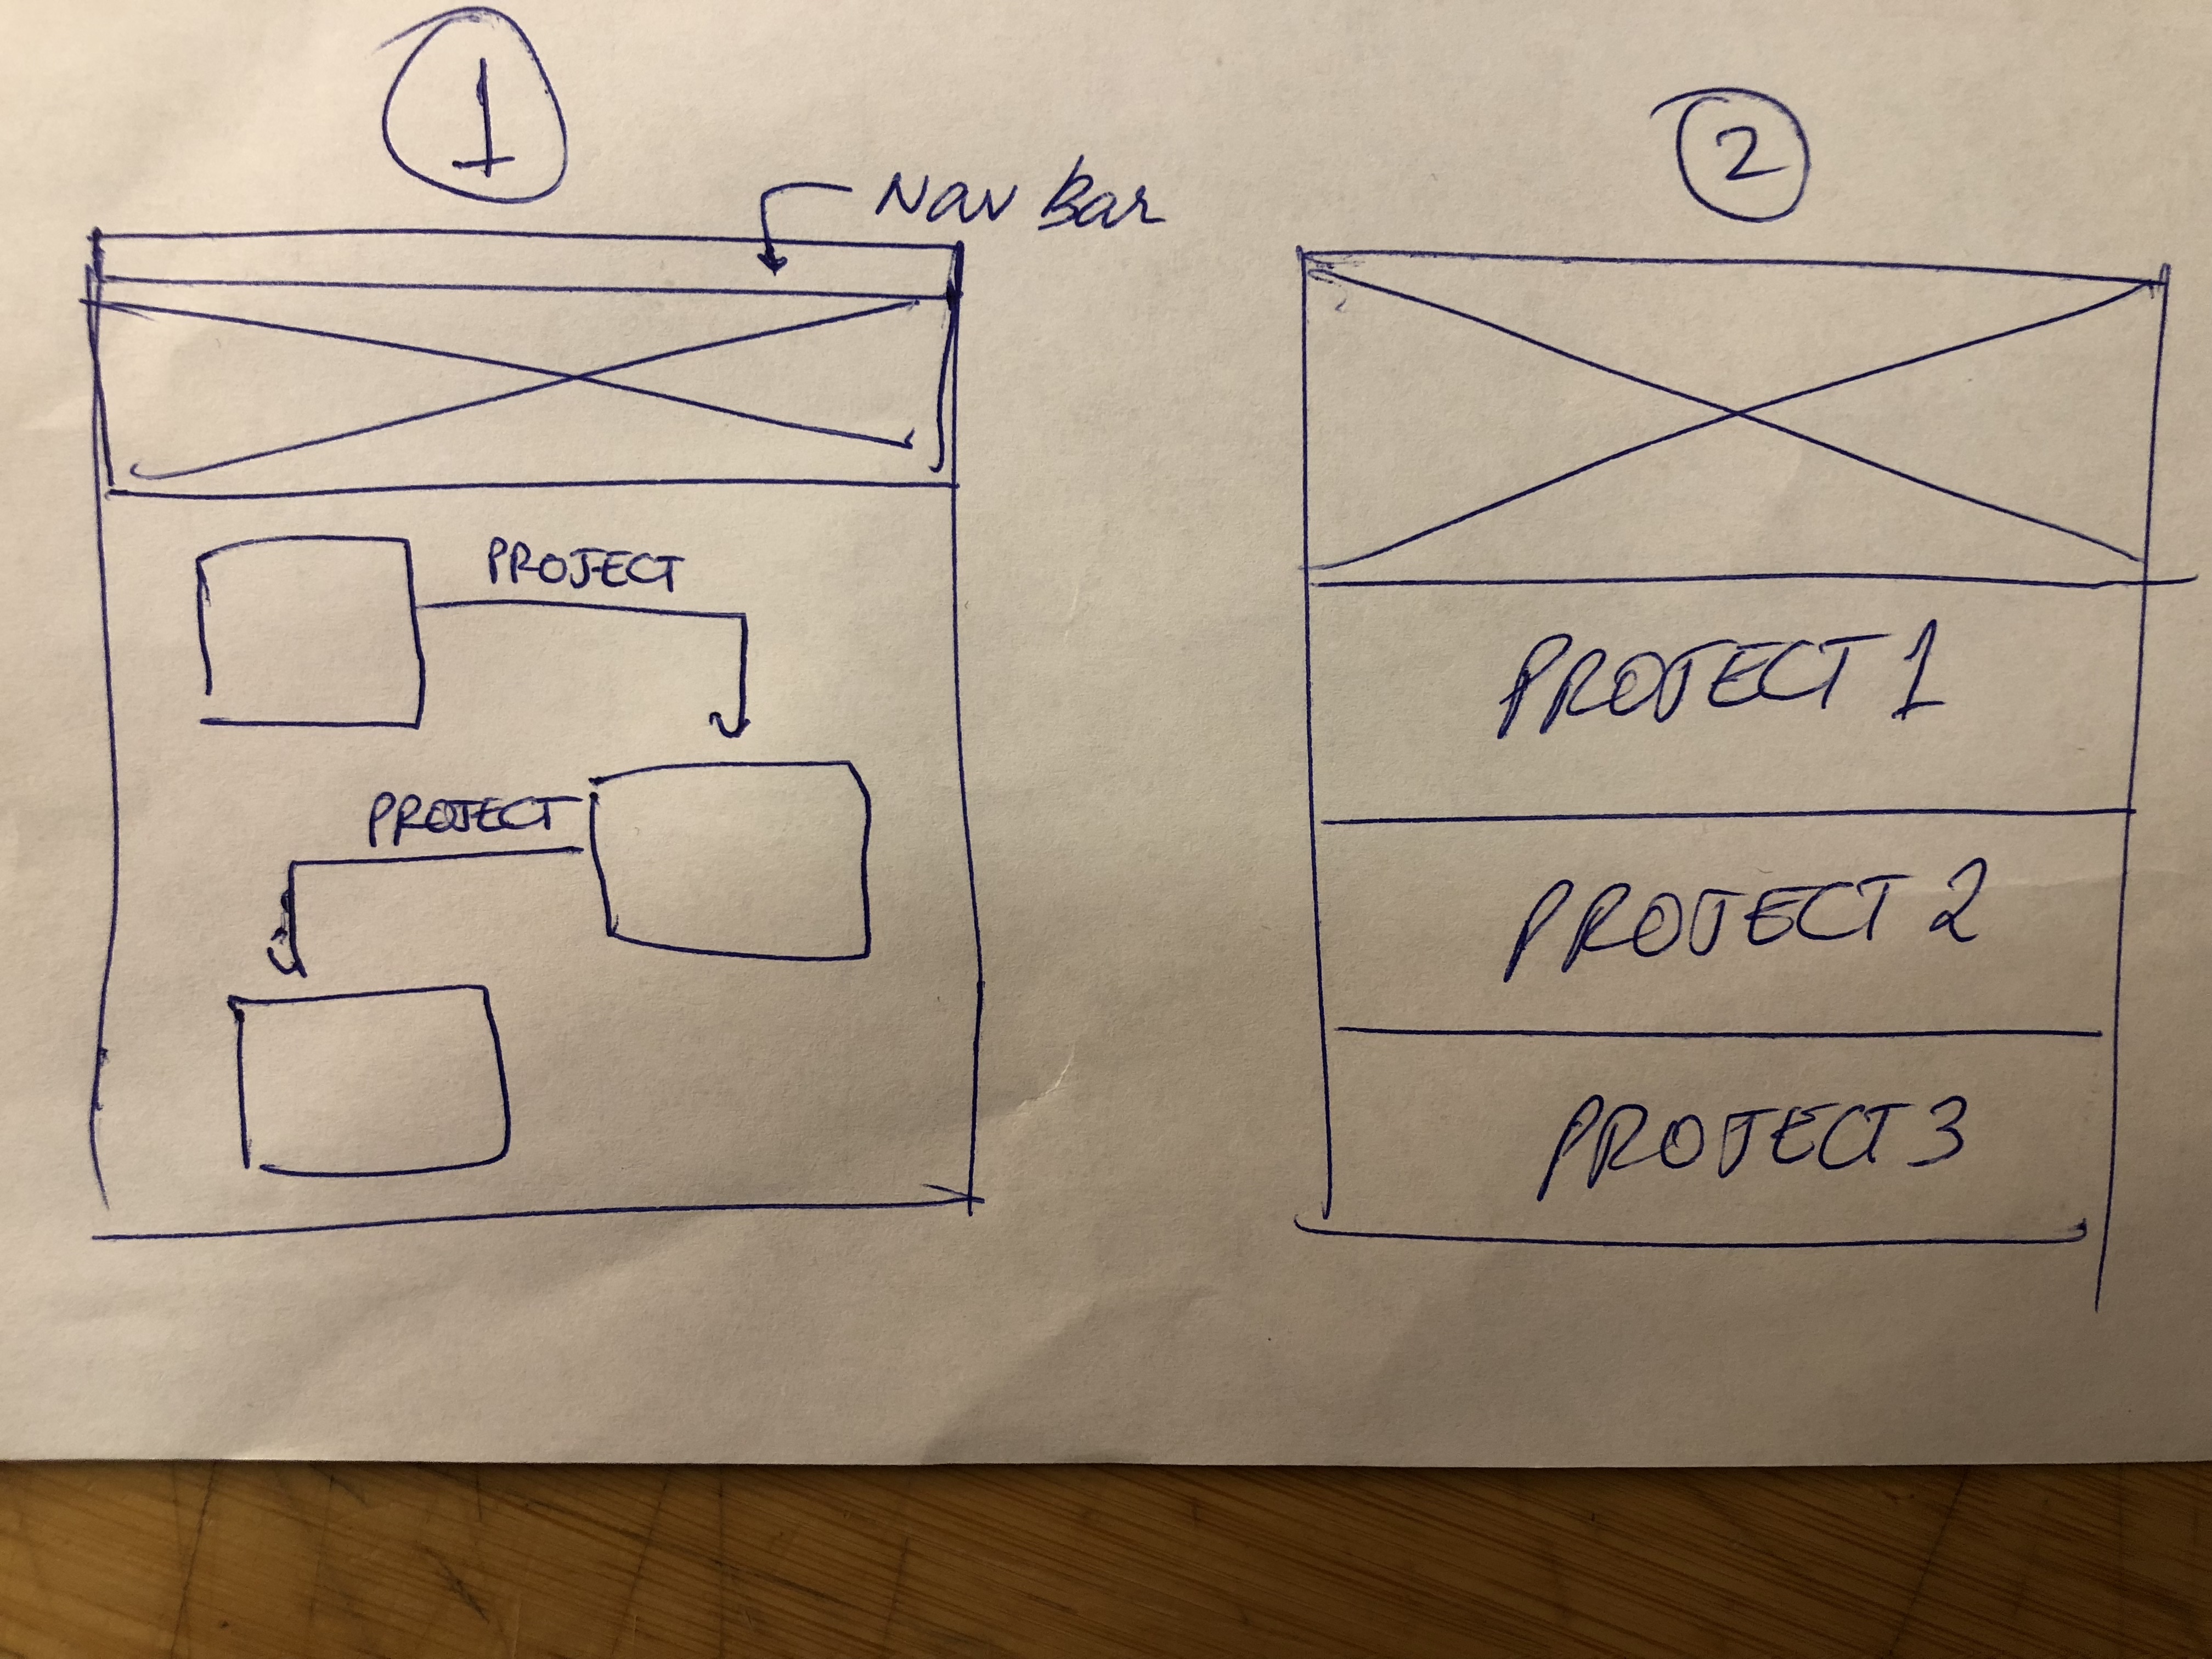 1
Nav Bar
PROJECT
PROJECT
2
PROJECT 1
PROJECT 2
PROJECT 3